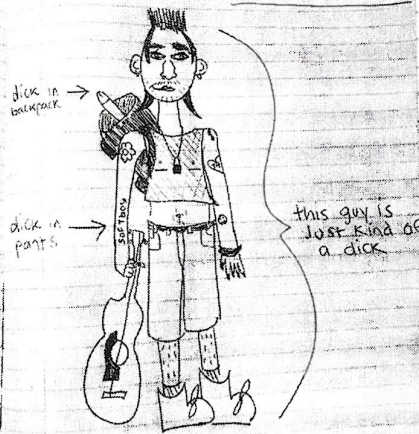 dick in
backpack
dick in
pants
SOFTBOY
this guy is
Just kind of
a dick